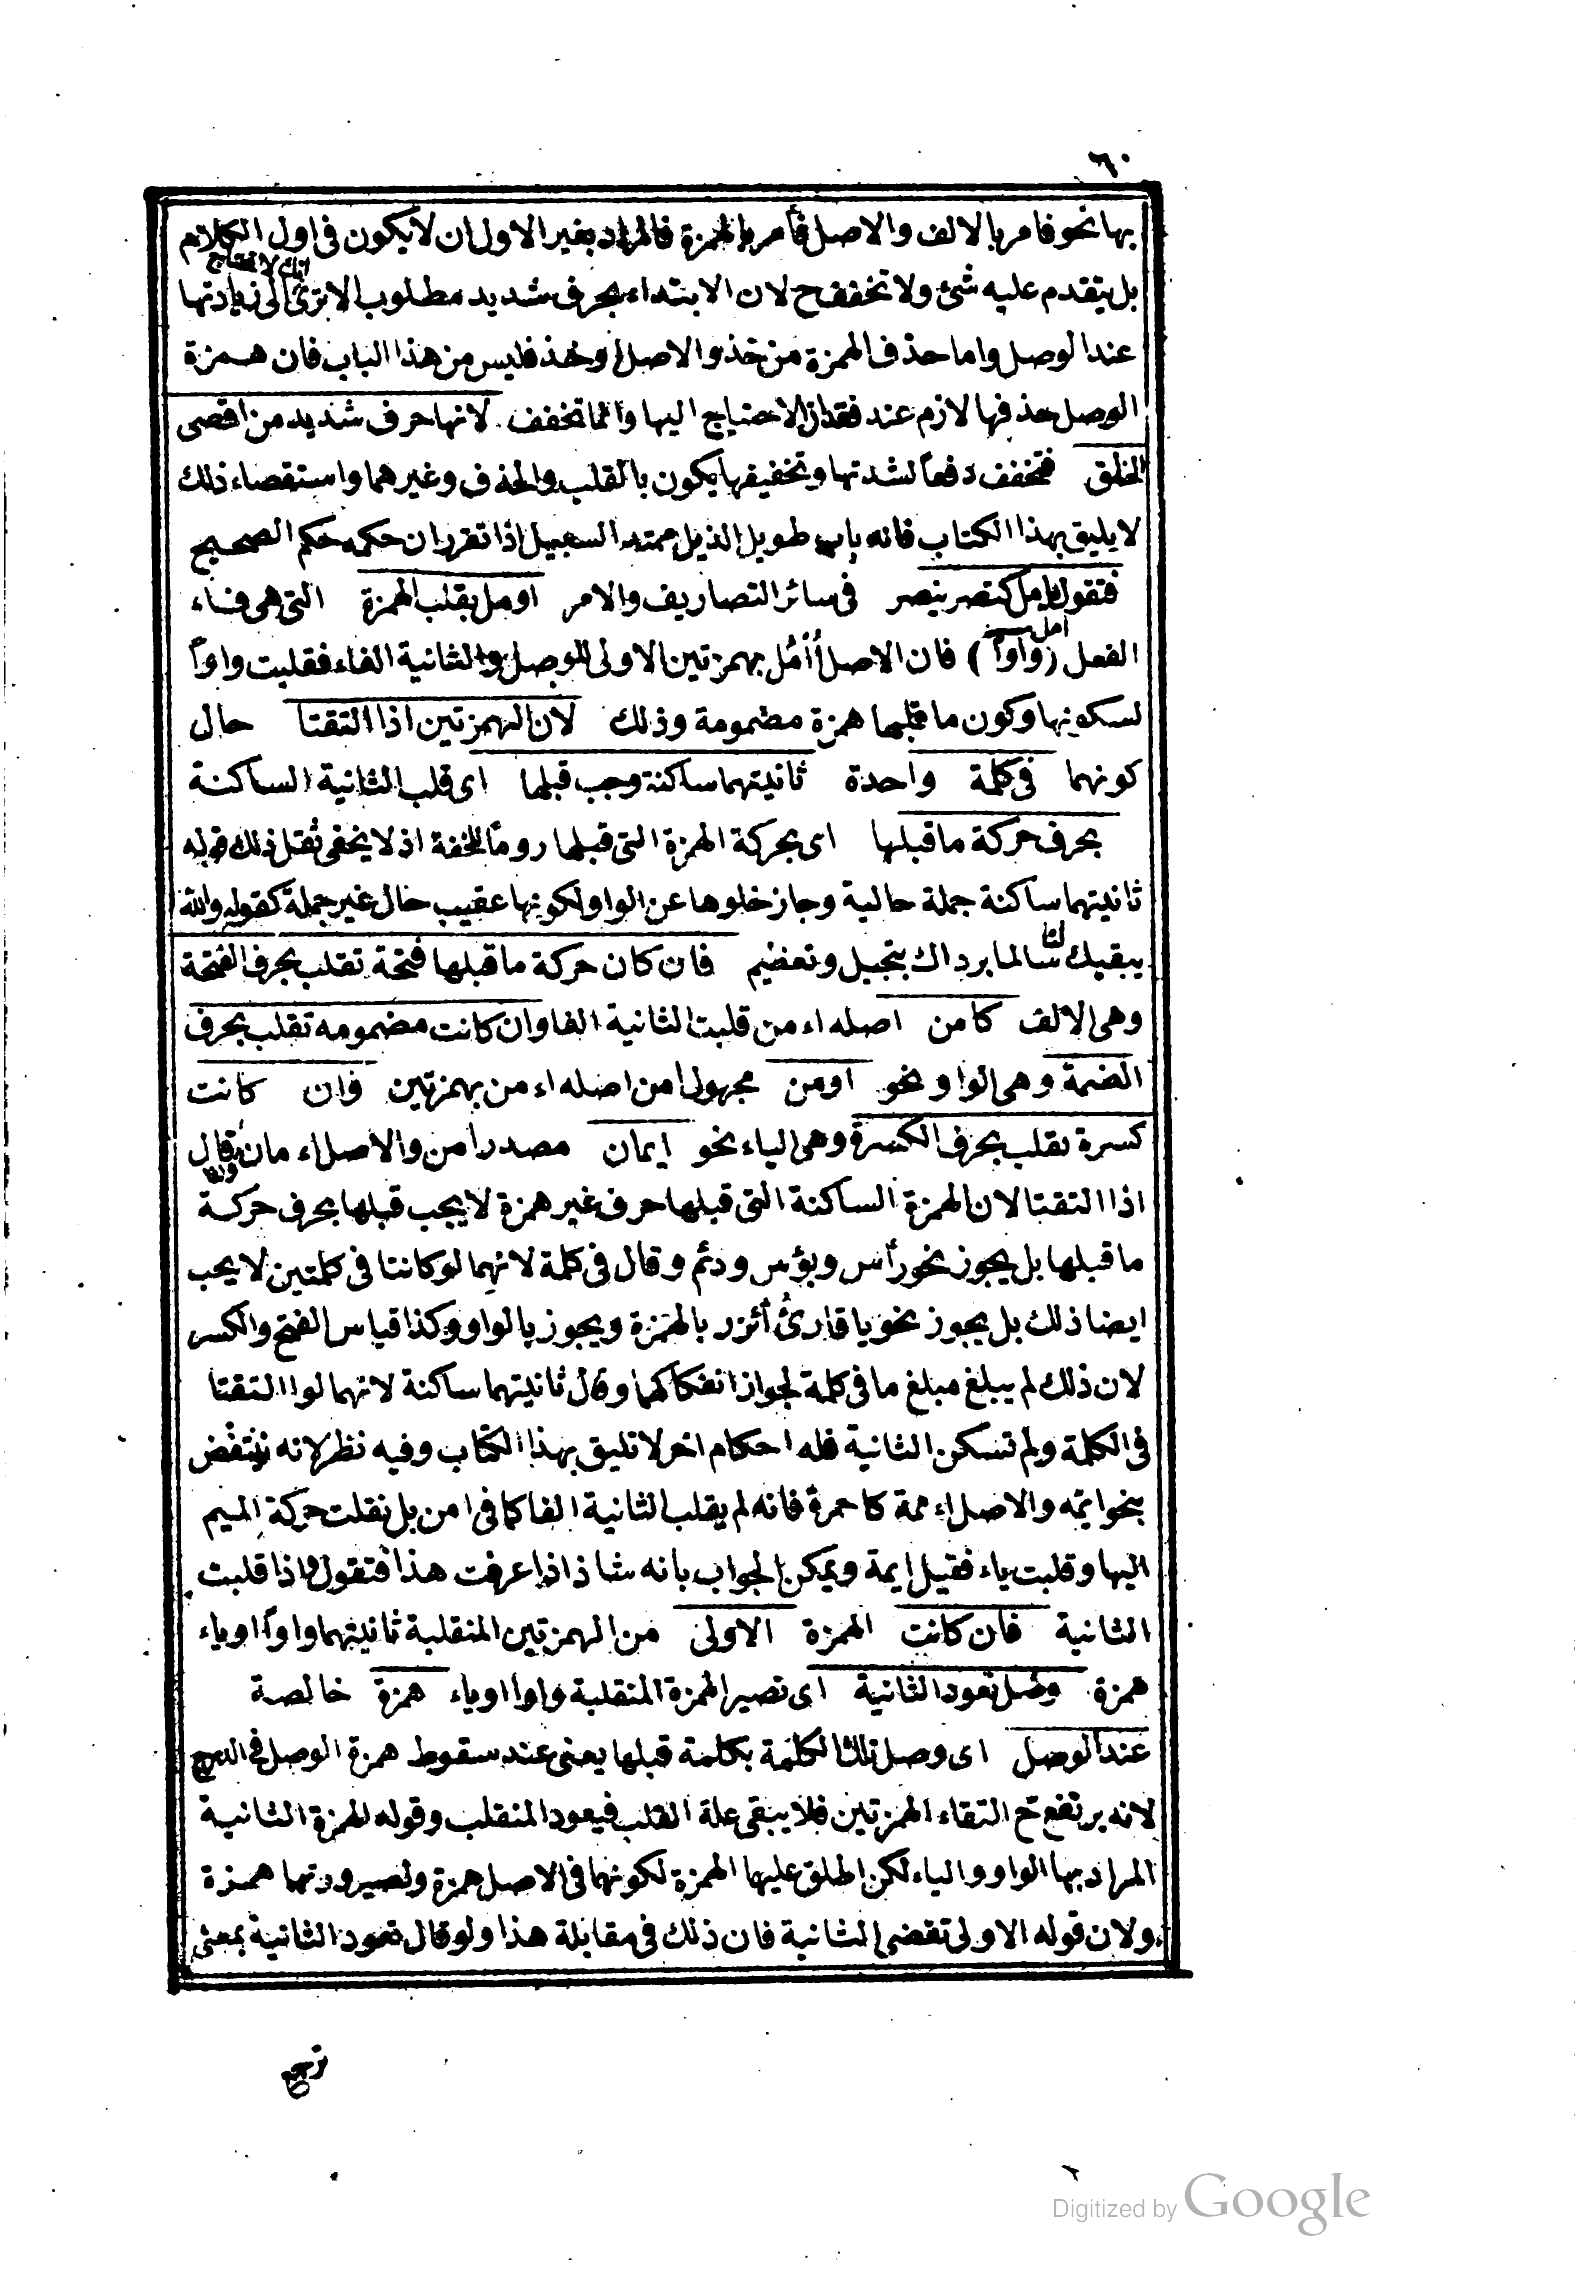 ٦٠
بها نحو فامر بالالف والاصل فأمر بالهمزة فالمراد بغير الاول ان لا يكون فى اول الكلام
بل يتقدم عليه شئ ولا تخفف ح لان الابتداء بحرف شديد مطلوب الا ترى انك لا تحتاج الى زيادتها
عند الوصل واما حذف الهمزة من خذ والاصل اوخذ فليس من هذا الباب فان همزة
الوصل حذفها لازم عند فقدان الاحتياج اليها وانما تخفف لانها حرف شديد من اقصى
الحلق فتخفف دفعاً لشدتها وتخفيفها يكون بالقلب والحذف وغيرهما واستقصاء ذلك
لا يليق بهذا الكتاب فانه باب طويل الذيل ممتد السبيل اذا تقرر ان حكمه حكم الصحيح
فتقول امل يأمل كنصر ينصر فى سائر التصاريف والامر اومل بقلب الهمزة التى هى فاء
الفعل (واواً) فان الاصل أأمُل بهمزتين الاولى للوصل والثانية الفاء فقلبت واواً
لسكونها وكون ما قبلها همزة مضمومة وذلك لان الهمزتين اذا التقتا حال
كونهما فى كلمة واحدة ثانيتهما ساكنة وجب قبلها اى قلب الثانية الساكنة
بحرف حركة ما قبلها اى بحركة الهمزة التى قبلها روماً للخفة اذ لا يخفى ثقل ذلك قوله
ثانيتهما ساكنة جملة حالية وجاز خلوها عن الواو لكونها عقيب حال غير جملة كقوله والله
يبقيك لنا سالما برداك بتجيل وتعضيم فان كان حركة ما قبلها فتحة تقلب بحرف الفتحة
وهى الالف كامن اصله اءمن قلبت الثانية الفا وان كانت مضمومه تقلب بحرف
الضمة وهى الواو نحو اومن مجهول امن اصله اءمن بهمزتين وان كانت
كسرة تقلب بحرف الكسرة وهى الياء نحو ايمان مصدر امن والاصل اءمان وانما قال
اذا التقتا لان الهمزة الساكنة التى قبلها حرف غير همزة لا يجب قبلها بحرف حركة
ما قبلها بل يجوز نحو رأس وبؤس ودئم وقال فى كلمة لانهما لو كانتا فى كلمتين لا يجب
ايضا ذلك بل يجوز نحو يا قارئ أئزر بالهمزة ويجوز بالواو وكذا قياس الفتح والكسر
لان ذلك لم يبلغ مبلغ ما فى كلمة لجواز انفكاكهما وقال ثانيتهما ساكنة لانهما لو التقتا
فى الكلمة ولم تسكن الثانية فله احكام اخر لا تليق بهذا الكتاب وفيه نظر لانه ينتقض
بنحو ايمّه والاصل اءممة كاحمرة فانه لم يقلب الثانية الفا كما فى امن بل نقلت حركة الميم
اليها وقلبت ياء فقيل ايمة ويمكن الجواب بانه شاذ اذا عرفت هذا فتقول واذا قلبت
الثانية فان كانت الهمزة الاولى من الهمزتين المنقلبة ثانيتهما واواً او ياء
همزة وصل تعود الثانية اى تصير الهمزة المنقلبة واوا او ياء همزة خالصة
عند الوصل اى وصل تلك الكلمة بكلمة قبلها يعنى عند سقوط همزة الوصل فى الدرج
لانه يرتفع ح التقاء الهمزتين فلا يبقى علة القلب فيعود المنقلب وقوله الهمزة الثانية
المراد بها الواو والياء لكن اطلق عليها الهمزة لكونها فى الاصل همزة ولصيرورتها همزة
ولان قوله الاولى تقضى الثانية فان ذلك فى مقابلة هذا ولو قال تعود الثانية بمعنى
ترجع
Digitized by Google